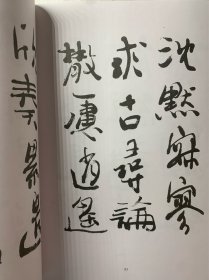 沈默寂寥
求古尋論
散慮逍遙
欣奏累遣